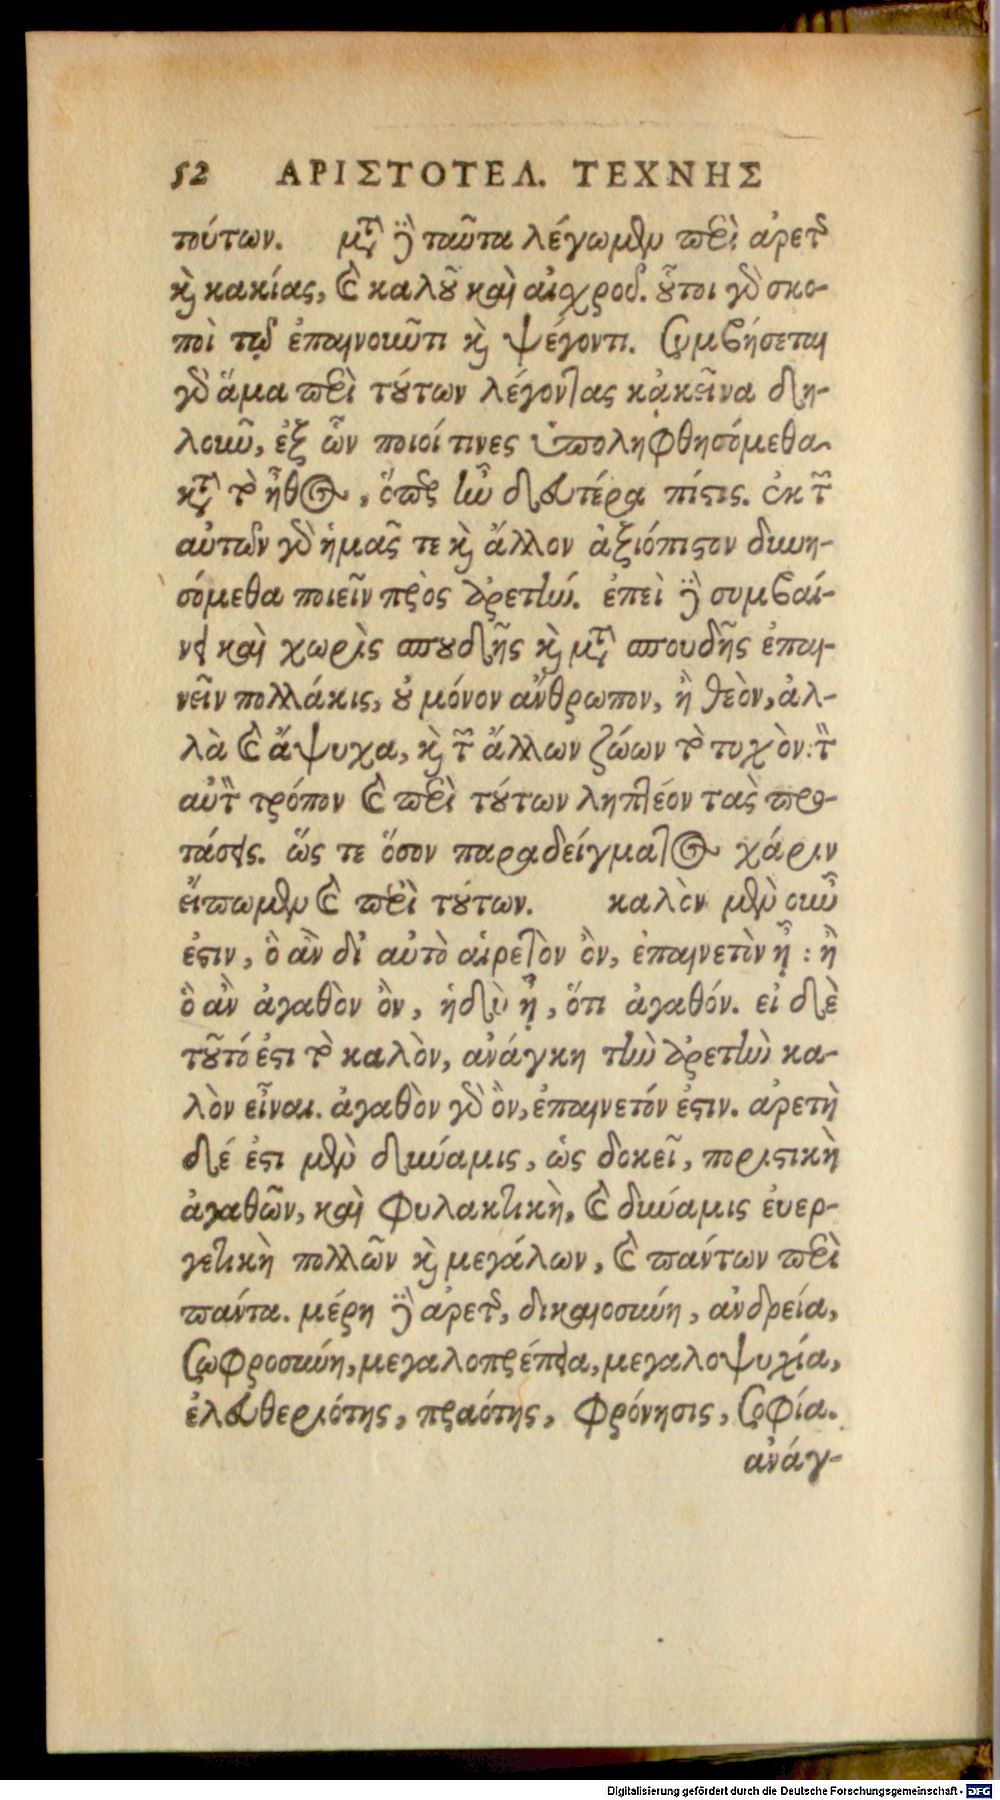 52 ΑΡΙΣΤΟΤΕΛ. ΤΕΧΝΗΣ
τούτων. μετὰ δὲ ταῦτα λέγωμεν περὶ ἀρετῆς
καὶ κακίας, καὶ καλοῦ καὶ αἰσχροῦ. οὗτοι γὰρ σκο-
ποὶ τῷ ἐπαινοῦντι καὶ ψέγοντι. συμβήσεται
γὰρ ἅμα περὶ τούτων λέγοντας κἀκεῖνα δη-
λοῦν, ἐξ ὧν ποιοί τινες ὑποληφθησόμεθα
κατὰ τὸ ἦθος, ὅπερ ἦν δευτέρα πίστις. ἐκ τῶν
αὐτῶν γὰρ ἡμᾶς τε καὶ ἄλλον ἀξιόπιστον δυνη-
σόμεθα ποιεῖν πρὸς ἀρετήν. ἐπεὶ δὲ συμβαί-
νει καὶ χωρὶς σπουδῆς καὶ μετὰ σπουδῆς ἐπαι-
νεῖν πολλάκις, οὐ μόνον ἄνθρωπον, ἢ θεὸν, ἀλ-
λὰ καὶ ἄψυχα, καὶ τῶν ἄλλων ζώων τὸ τυχὸν: τὸν
αὐτὸν τρόπον καὶ περὶ τούτων ληπτέον τὰς προ-
τάσεις. ὥς τε ὅσον παραδείγματος χάριν
εἴπωμεν καὶ περὶ τούτων. καλὸν μὲν οὖν
ἐστιν, ὃ ἂν δι' αὐτὸ αἱρετὸν ὂν, ἐπαινετὸν ᾖ: ἢ
ὃ ἂν ἀγαθὸν ὂν, ἡδὺ ᾖ, ὅτι ἀγαθόν. εἰ δὲ
τοῦτό ἐστι τὸ καλὸν, ἀνάγκη τὴν ἀρετὴν κα-
λὸν εἶναι. ἀγαθὸν γὰρ ὂν, ἐπαινετόν ἐστιν. ἀρετὴ
δέ ἐστι μὲν δύναμις, ὡς δοκεῖ, ποριστικὴ
ἀγαθῶν, καὶ φυλακτικὴ, καὶ δύναμις ἐυερ-
γετικὴ πολλῶν καὶ μεγάλων, καὶ πάντων περὶ
πάντα. μέρη δὲ ἀρετῆς, δικαιοσύνη, ἀνδρεία,
σωφροσύνη, μεγαλοπρέπεια, μεγαλοψυχία,
ἐλευθεριότης, πραότης, φρόνησις, σοφία.
ἀνάγ-
Digitalisierung gefördert durch die Deutsche Forschungsgemeinschaft - DFG